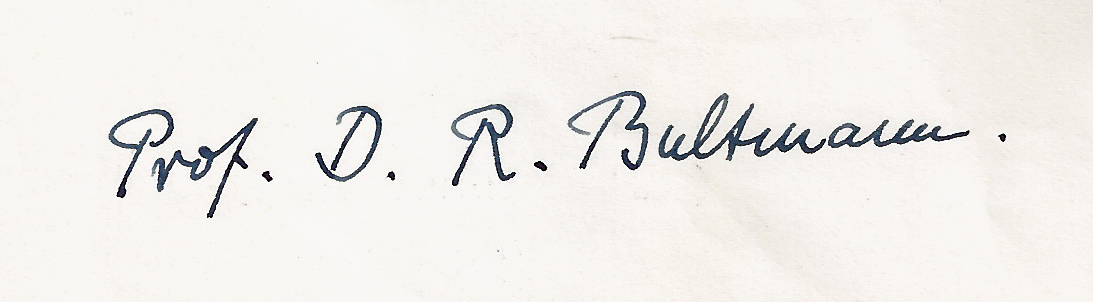 Prof. D. R. Bultmann.